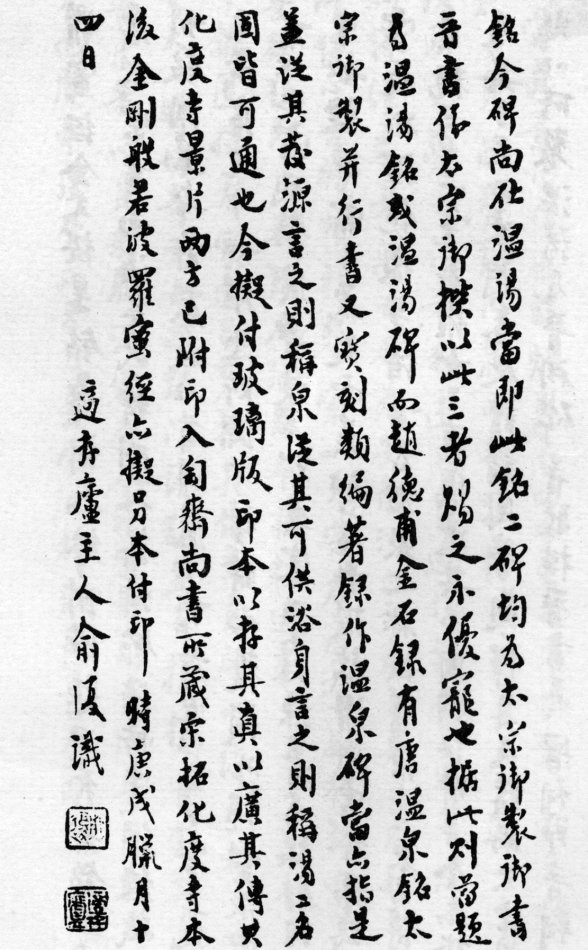 銘今碑尚在温湯當即此銘二碑均為太宗御製御書
晉書係太宗御撰以此三者賜之示優寵也据此則當題
為温湯銘或温湯碑而趙德甫金石録有唐温泉銘太
宗御製并行書又寳刻類編著録作温泉碑當亦指是
盖從其發源言之則稱泉從其可供浴身言之則稱湯二名
固皆可通也今擬付玻璃版印本以存其真以廣其傳其
化度寺景片兩方已附印入匋齋尚書所藏宋拓化度寺本
後金剛般若波羅蜜經亦擬另本付印時庚戌臘月十
四日
適存廬主人俞復識